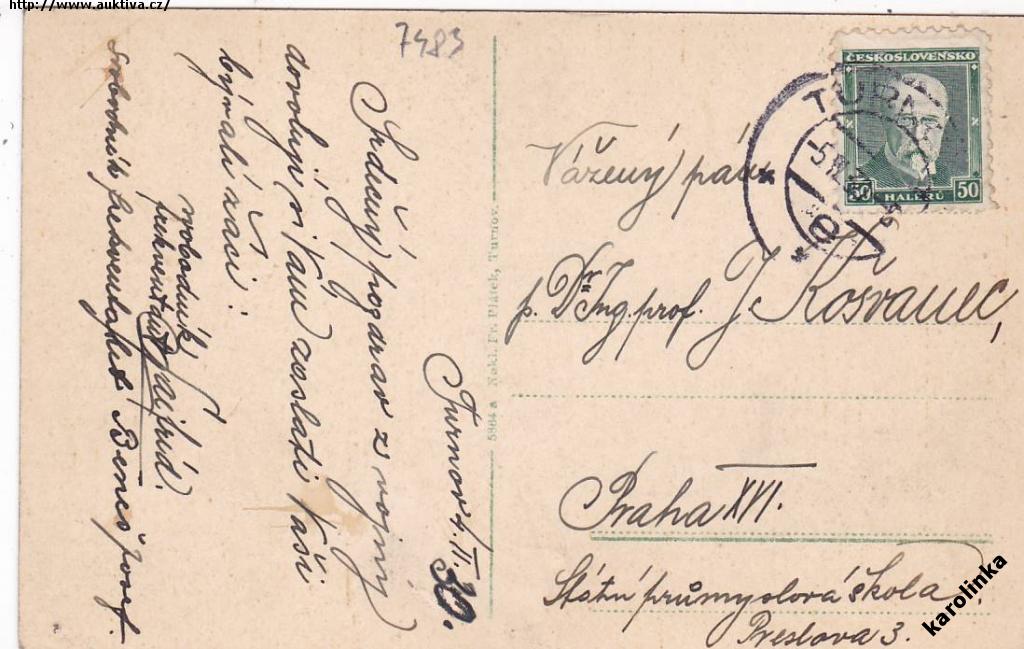 http://www.auktiva.cz/
7483
Turnov 4/II. 30.
Srdečný pozdrav z vojny
dovolují si Vám zaslati Vaši
bývalí žáci:
svobodník
frekventant
svobodník frekventant Beneš Josef.
5864 a Nakl. Fr. Plátek, Turnov.
ČESKOSLOVENSKO
50 HALÉŘŮ 50
TURNOV
Vážený pán
p. Dr. Ing. prof. J. Košvanec,
Praha XVI.
Státní průmyslová škola.
Preslova 3.
karolinka